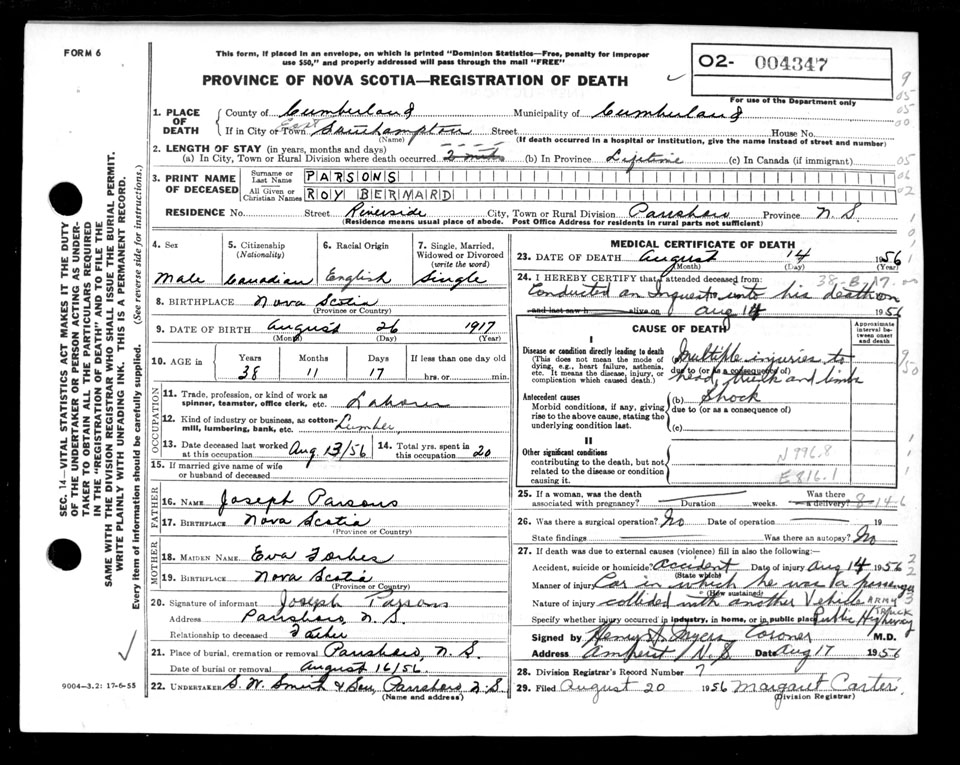 FORM 6
This form, if placed in an envelope, on which is printed "Dominion Statistics—Free, penalty for improper
use $50," and properly addressed will pass through the mail "FREE"
PROVINCE OF NOVA SCOTIA—REGISTRATION OF DEATH
O2- 004347
For use of the Department only
1. PLACE OF DEATH County of Cumberland Municipality of Cumberland
If in City or Town East Southampton (Name) Street House No.
(If death occurred in a hospital or institution, give the name instead of street and number)
2. LENGTH OF STAY (in years, months and days)
(a) In City, Town or Rural Division where death occurred (b) In Province Lifetime (c) In Canada (if immigrant)
3. PRINT NAME OF DECEASED Surname or Last Name PARSONS
All Given or Christian Names ROY BERNARD
RESIDENCE No. Street Riverside City, Town or Rural Division Parrsboro Province N. S.
(Residence means usual place of abode. Post Office Address for residents in rural parts not sufficient)
4. Sex 5. Citizenship (Nationality) 6. Racial Origin 7. Single, Married, Widowed or Divorced (write the word)
Male Canadian English Single
8. BIRTHPLACE Nova Scotia
(Province or Country)
9. DATE OF BIRTH August 26 1917
(Month) (Day) (Year)
10. AGE in Years Months Days If less than one day old
38 11 17 hrs. or min.
OCCUPATION
11. Trade, profession, or kind of work as spinner, teamster, office clerk, etc. Laborer
12. Kind of industry or business, as cotton-mill, lumbering, bank, etc. Lumber
13. Date deceased last worked at this occupation Aug 13/56 14. Total yrs. spent in this occupation 20
15. If married give name of wife or husband of deceased
FATHER
16. NAME Joseph Parsons
17. BIRTHPLACE Nova Scotia
(Province or Country)
MOTHER
18. MAIDEN NAME Eva Forbes
19. BIRTHPLACE Nova Scotia
(Province or Country)
20. Signature of informant Joseph Parsons
Address Parrsboro, N. S.
Relationship to deceased Father
21. Place of burial, cremation or removal Parrsboro, N. S.
Date of burial or removal August 16/56
22. UNDERTAKER S. W. Smith & Son, Parrsboro N. S.
(Name and address)
MEDICAL CERTIFICATE OF DEATH
23. DATE OF DEATH August 14 1956
(Month) (Day) (Year)
24. I HEREBY CERTIFY that I attended deceased from: 38-B-17.
Conducted an Inquest into his death on
and last saw h alive on Aug 14 1956
CAUSE OF DEATH
Approximate interval between onset and death
I
Disease or condition directly leading to death
(This does not mean the mode of dying, e.g., heart failure, asthenia, etc. It means the disease, injury, or complication which caused death.)
Multiple injuries to
due to (or as a consequence of)
head, trunk and limbs
Antecedent causes
Morbid conditions, if any, giving rise to the above cause, stating the underlying condition last.
(b) Shock
due to (or as a consequence of)
(c)
II
Other significant conditions
contributing to the death, but not related to the disease or condition causing it.
N 996.8
E 816.1
25. If a woman, was the death associated with pregnancy? Duration weeks. Was there a delivery? 8-14-6
26. Was there a surgical operation? No Date of operation 19
State findings Was there an autopsy? No
27. If death was due to external causes (violence) fill in also the following:—
Accident, suicide or homicide? accident Date of injury Aug 14 1956
(State which)
Manner of injury Car in which he was a passenger
(How sustained)
Nature of injury collided with another Vehicle ARMY TRUCK
Specify whether injury occurred in industry, in home, or in public place Public Highway
Signed by Henry A. Myers Coroner M.D.
Address Amherst N. S. Date Aug 17 1956
28. Division Registrar's Record Number 7
29. Filed August 20 1956 Margaret Carter
(Division Registrar)
SEC. 14—VITAL STATISTICS ACT MAKES IT THE DUTY
OF THE UNDERTAKER OR PERSON ACTING AS UNDER-
TAKER TO OBTAIN ALL THE PARTICULARS REQUIRED
IN THE "REGISTRATION OF DEATH" AND TO FILE THE
SAME WITH THE DIVISION REGISTRAR WHO SHALL ISSUE THE BURIAL PERMIT.
WRITE PLAINLY WITH UNFADING INK. THIS IS A PERMANENT RECORD.
Every item of information should be carefully supplied. (See reverse side for instructions.)
9004—3.2: 17-6-55